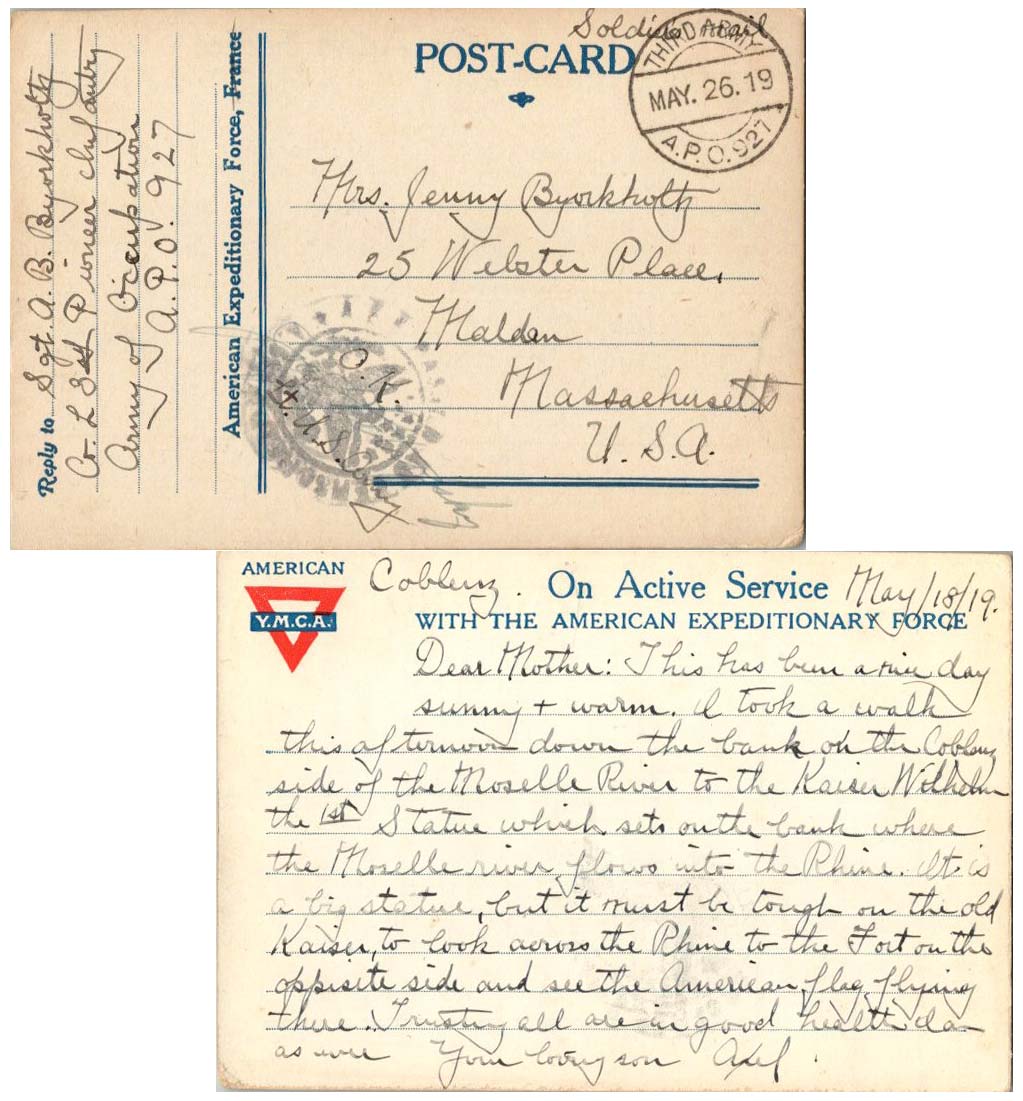 Soldier's Mail
POST-CARD
THIRD ARMY
MAY. 26. 19
A.P.O. 927
Mrs. Jenny Byorkholtz
25 Webster Place,
Malden
Massachusetts
U. S. A.
Reply to Sgt. A. B. Byorkholtz
Co. L 3st Pioneer Infantry
Army of Occupation
A. P. O. 927
American Expeditionary Force, France
O. K.
Lt. U.S. Army
AMERICAN
Y.M.C.A.
Coblenz.
On Active Service
May/18/19.
WITH THE AMERICAN EXPEDITIONARY FORCE
Dear Mother: This has been a nice day
sunny + warm. I took a walk
this afternoon down the bank on the Coblenz
side of the Moselle River to the Kaiser Wilhelm
the 1st Statue which sets on the bank where
the Moselle river flows into the Rhine. It is
a big statue, but it must be tough on the old
Kaiser, to look across the Rhine to the Fort on the
opposite side and see the American flag flying
there. Trusting all are in good health I am
as ever Your loving son Axel.